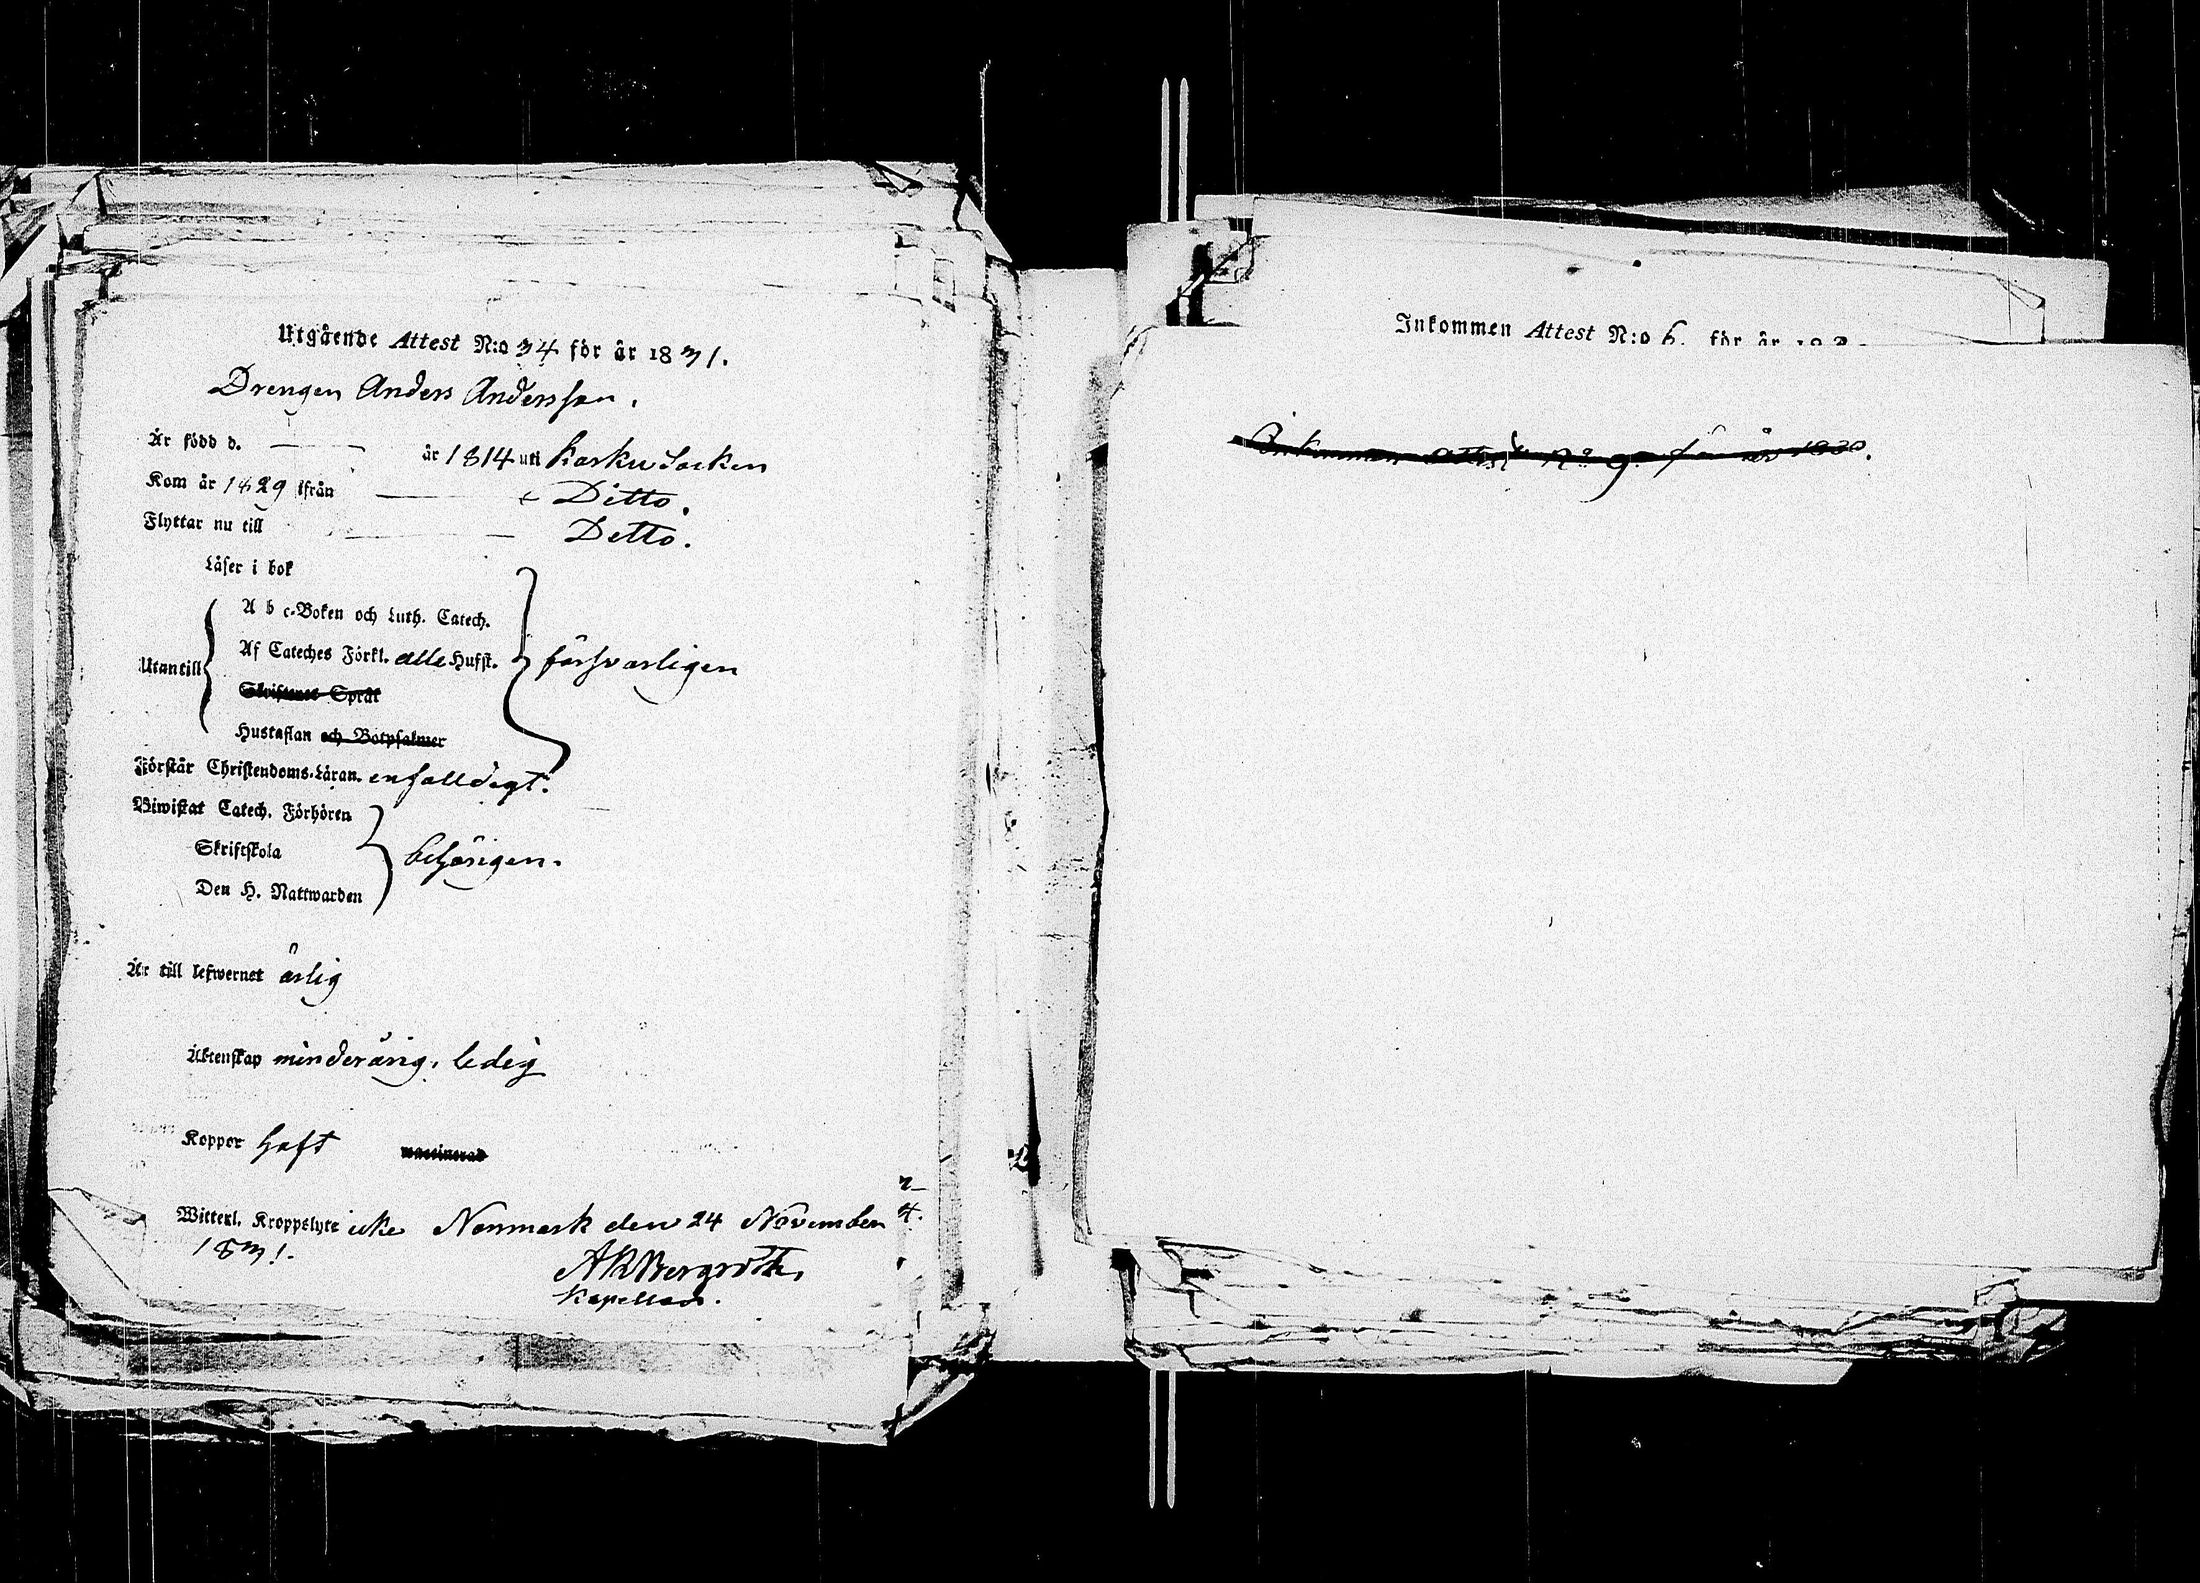 Utgående Attest N:o 34 för år 1831.
Drengen Anders Andersson.
Är född d. år 1814 uti Karku Socken
Kom år 1829 ifrån Ditto.
Flyttar nu till Detto.
Läser i bok
A b c-Boken och Luth. Catech.
Af Cateches Förkl. alle Hufst.
Utantill försvarligen
Skriftenes Språk
Hustaflan och Botpsalmer
Förstår Christendoms-Läran. enfalldigt.
Biwistat Catech. Förhören
Skriftskola behörigen.
Den H. Nattwarden
Är till lefwernet ärlig
Äktenskap minderårig, ledig
Koppor haft waccinerad
Witterl. Kroppslyte icke Nonmark den 24 November
1831.
Bergroth,
Kapellan.
Inkommen Attest N:o 6. för år
Inkommen attest No 9. för år 1830.